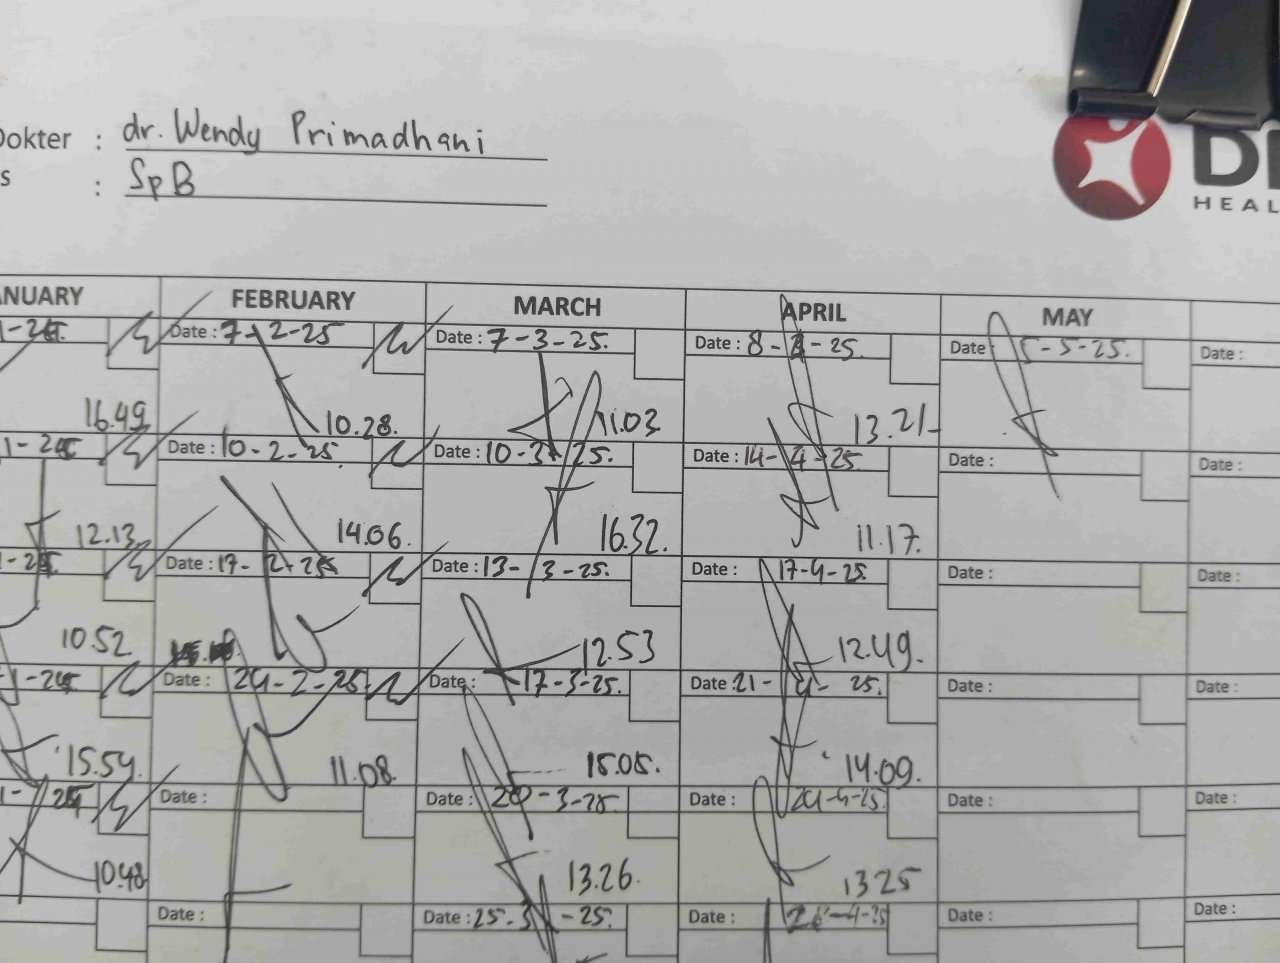 Dokter : dr. Wendy Primadhani
s : SpB
DI
HEAL
ANUARY FEBRUARY MARCH APRIL MAY
Date : 7-2-25 Date : 7-3-25. Date : 8-4-25. Date 5-5-25. Date :
16.49 10.28. 11.03 13.21
Date : 10-2-25. Date : 10-3-25. Date : 14-4-25 Date : Date :
12.13 14.06. 16.32. 11.17.
Date : 17-2-25 Date : 13-3-25. Date : 17-4-25. Date : Date :
10.52 12.53 12.49.
Date : 24-2-25 Date : 17-3-25. Date : 21-4-25. Date : Date :
15.54. 11.08 15.05. 14.09.
Date : Date : 20-3-25. Date : 24-4-25. Date : Date :
10.48 13.26. 13 25
Date : Date : 25-3-25. Date : 26-4-25 Date : Date :